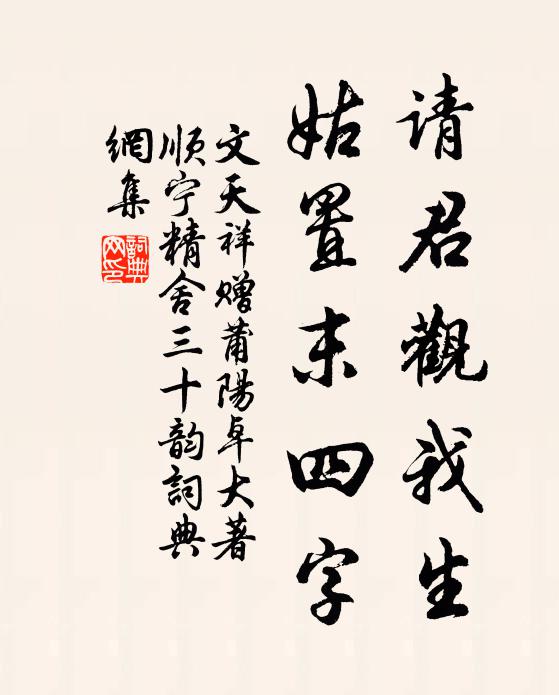 请君觀我生
姑置末四字
文天祥赠莆陽卓大著
顺宁精舍三十韵詞典
網集
詞典
网印